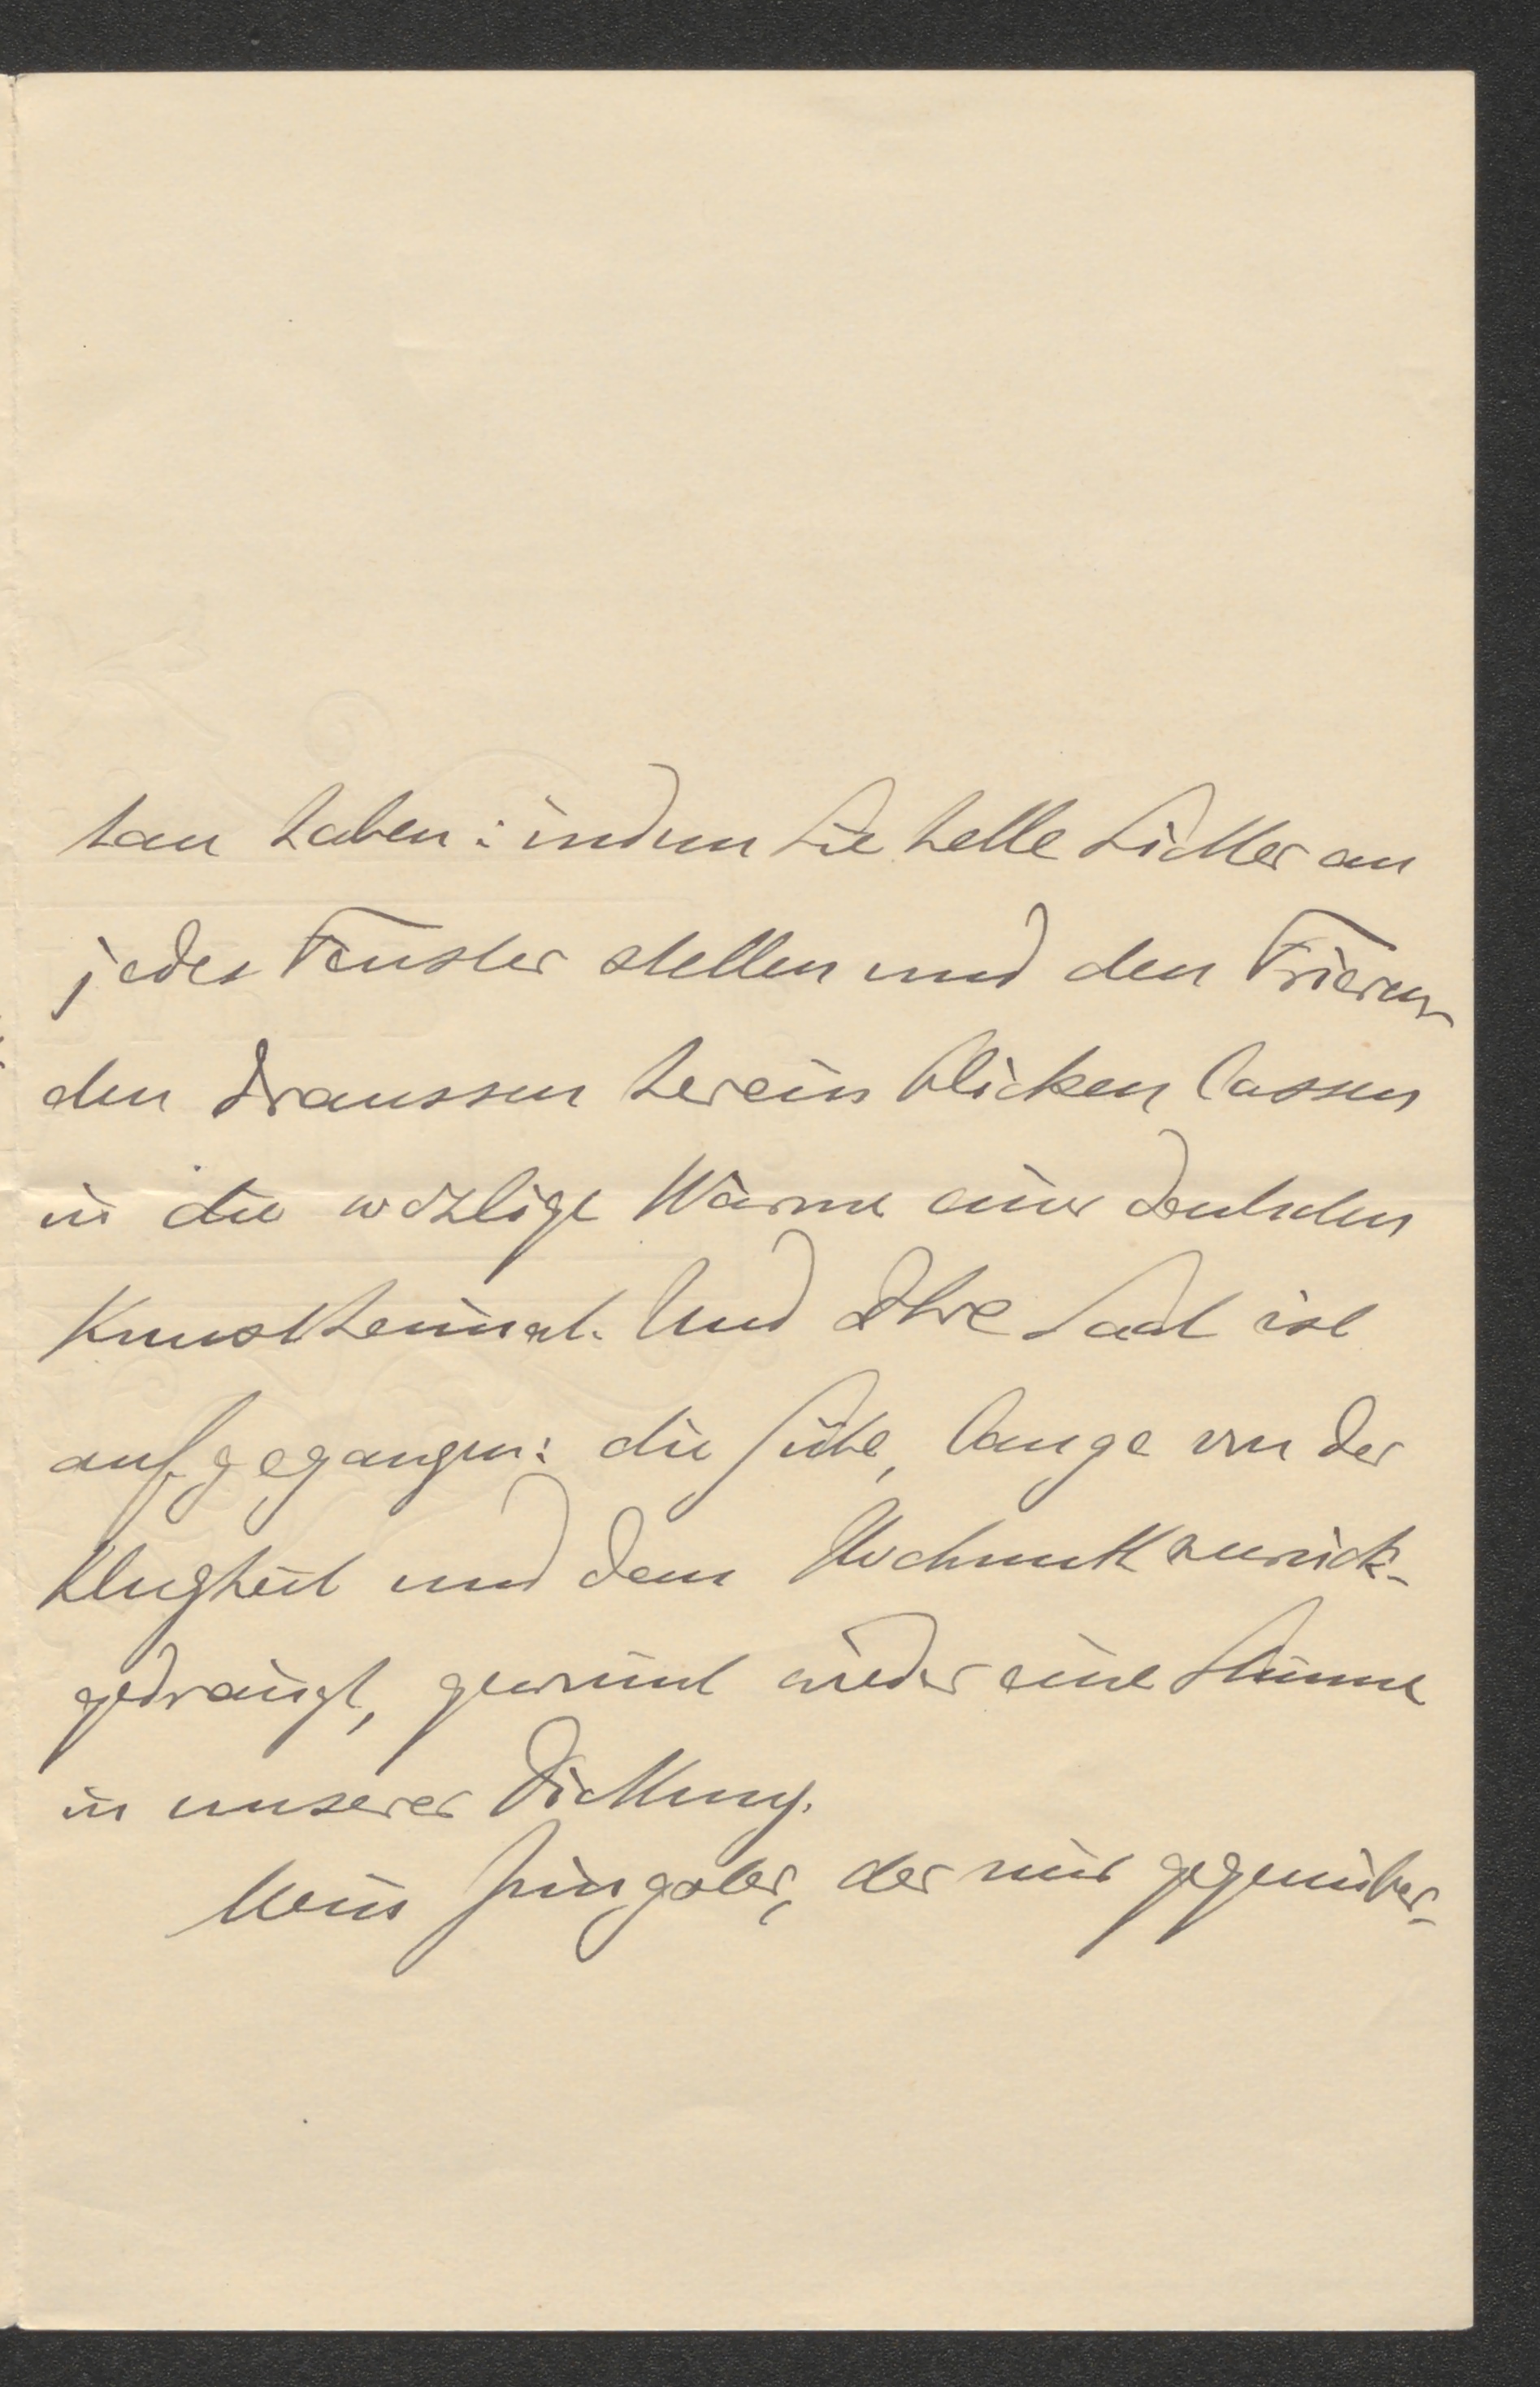 tan haben: indem Sie helle Lichter an
jedes Fenster stellen und den Frieren
den draussen herein blicken lassen
in die wohlige Wärme einer deutschen
Kunstheimat. Und Ihre Saat ist
aufgegangen: die Liebe, lange von der
Klugheit und dem Hochmuth zurück-
gedrängt, gewinnt wieder eine Stimme
in unserer Dichtung.
Mein der mir gegenüber-